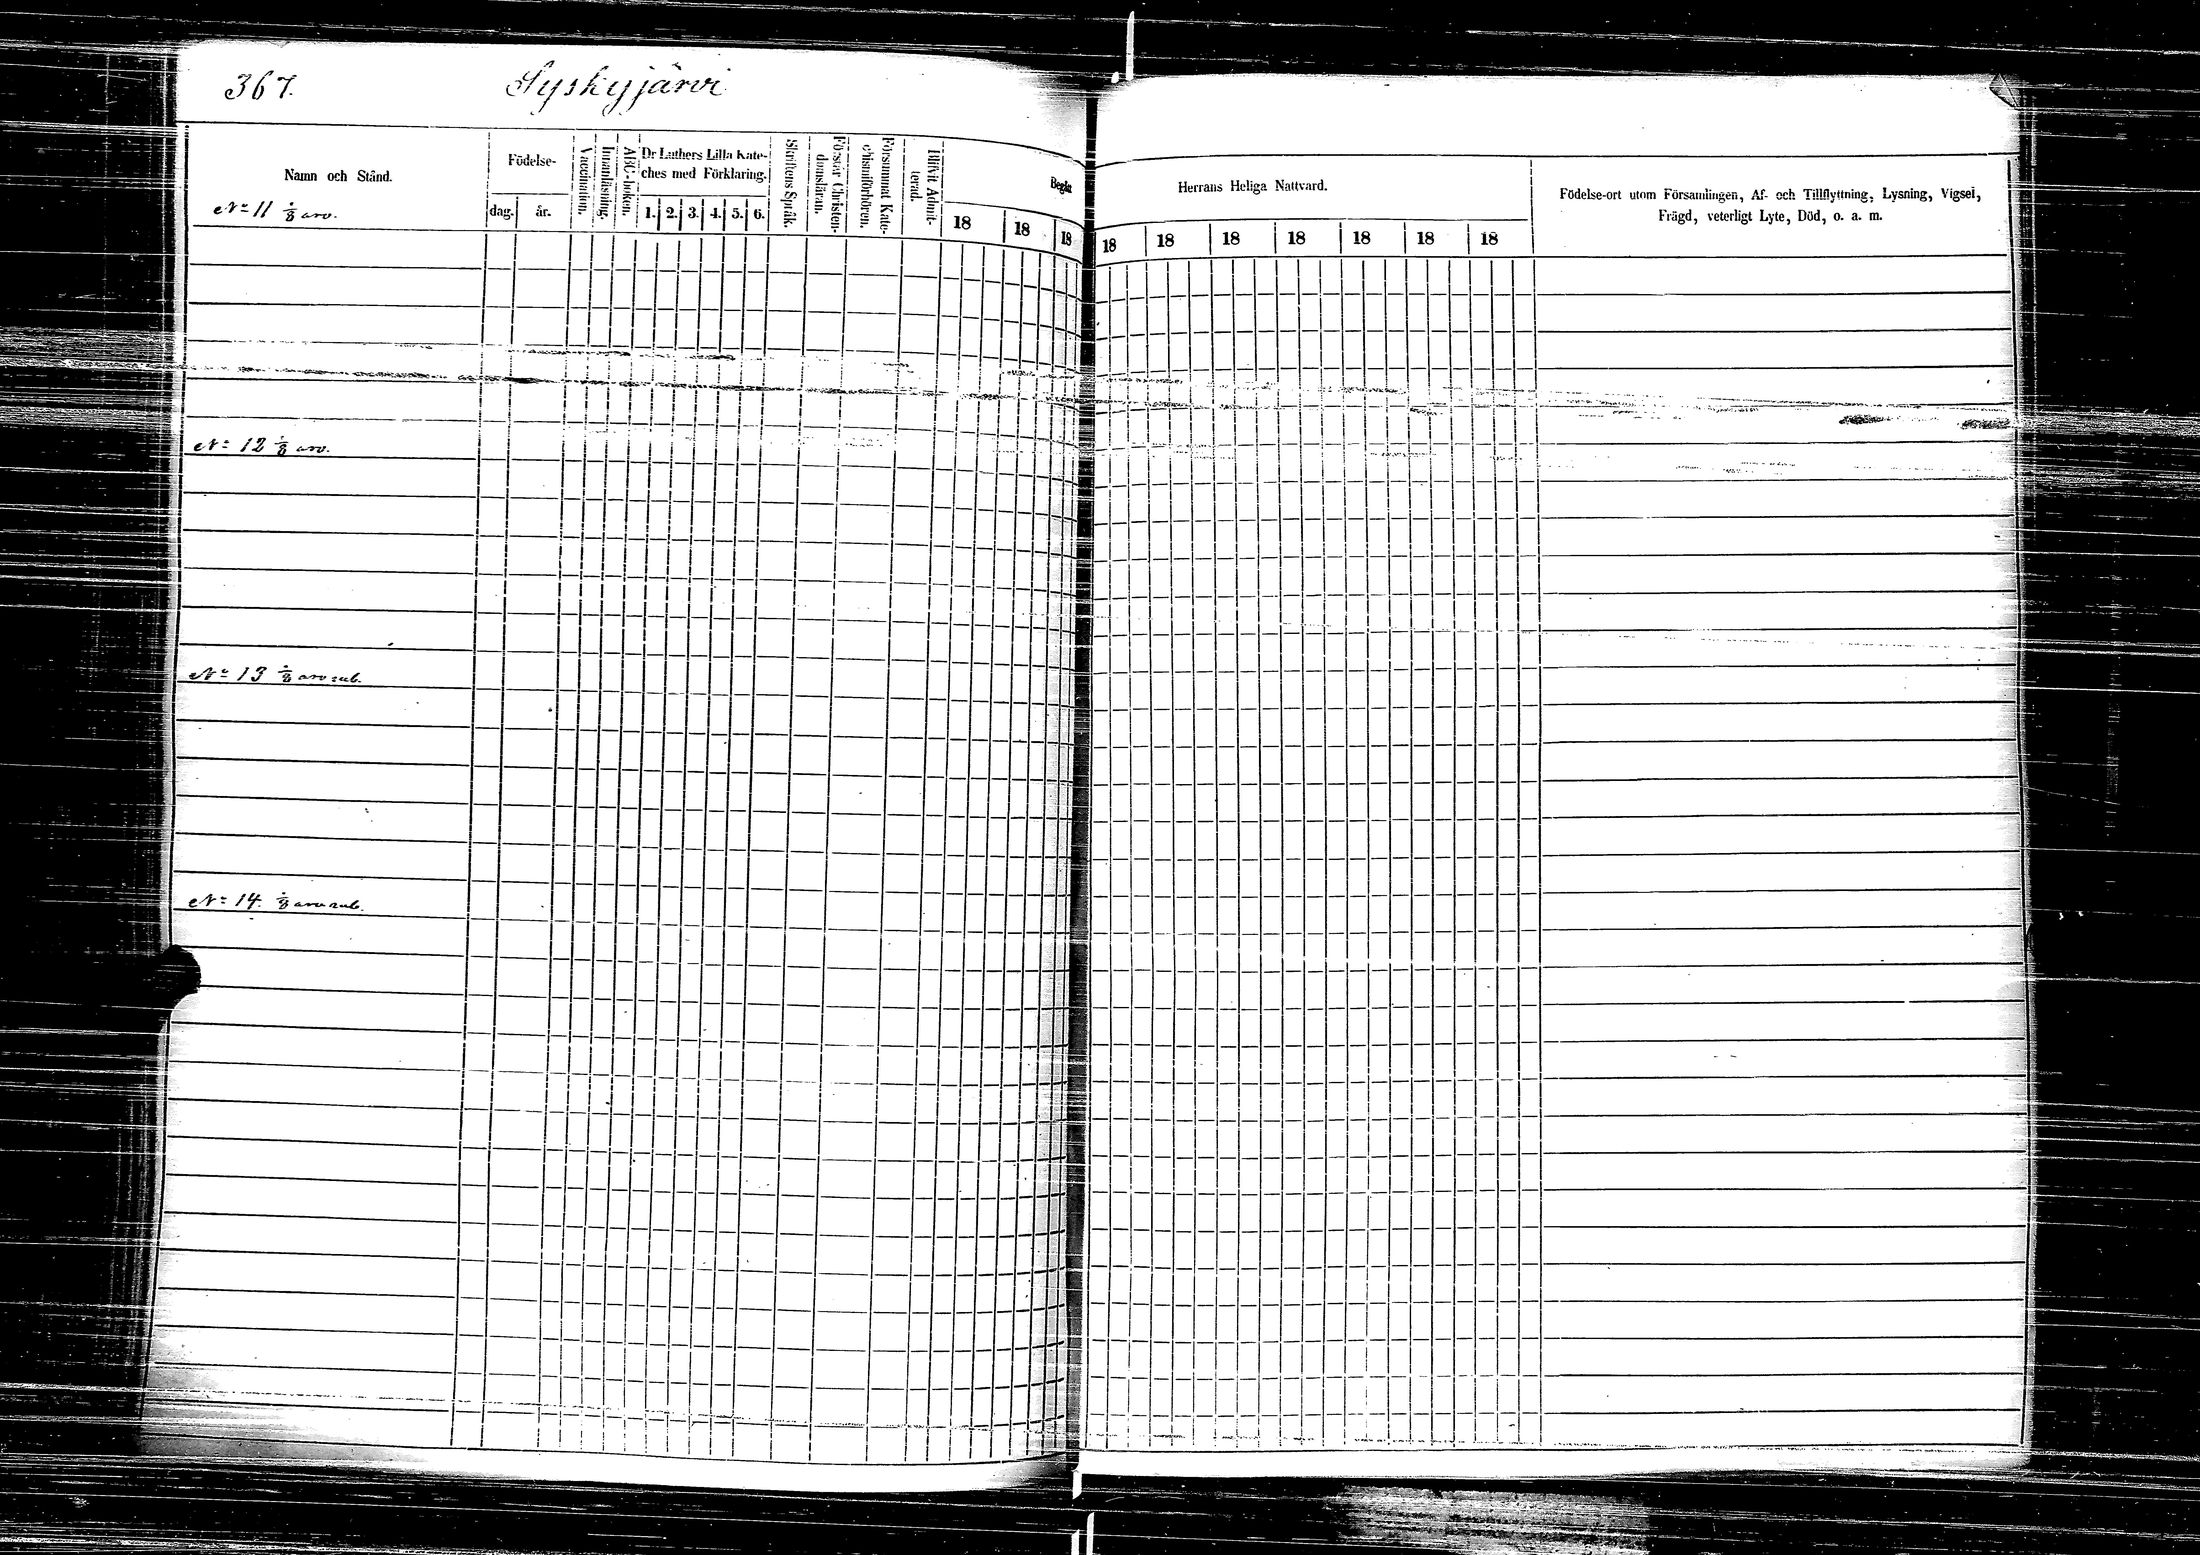 367. Syskyjärvi
Namn och Stånd.
Födelse-
dag. år.
Vaccination.
Innanläsning.
ABC-boken.
Dr Luthers Lilla Kate-
ches med Förklaring.
1. 2. 3. 4. 5. 6.
Skriftens Språk.
Förstår Christen-
domsläran.
Försummat Kate-
chismiförhören.
Blifvit Admit-
terad.
Begått
18 18 18
Herrans Heliga Nattvard.
18 18 18 18 18 18 18
Födelse-ort utom Församlingen, Af- och Tillflyttning, Lysning, Vigsel,
Frägd, veterligt Lyte, Död, o. a. m.
No 11
No 12
No 13
No 14.